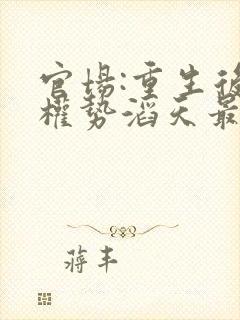 官场:重生後
權势滔天最
蒋丰